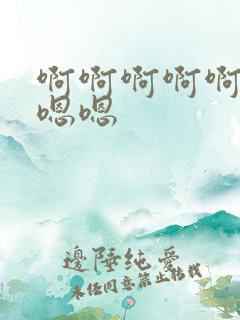 啊啊啊啊啊
嗯嗯
邊陲纯爱
未经同意禁止转载